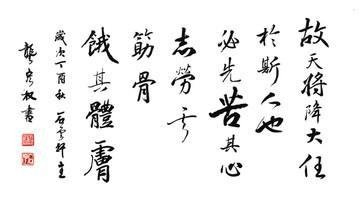 故天将降大任
於斯人也
必先苦其心
志勞其
筋骨
餓其體膚
歲次丁酉秋石雲軒主
龔容权書